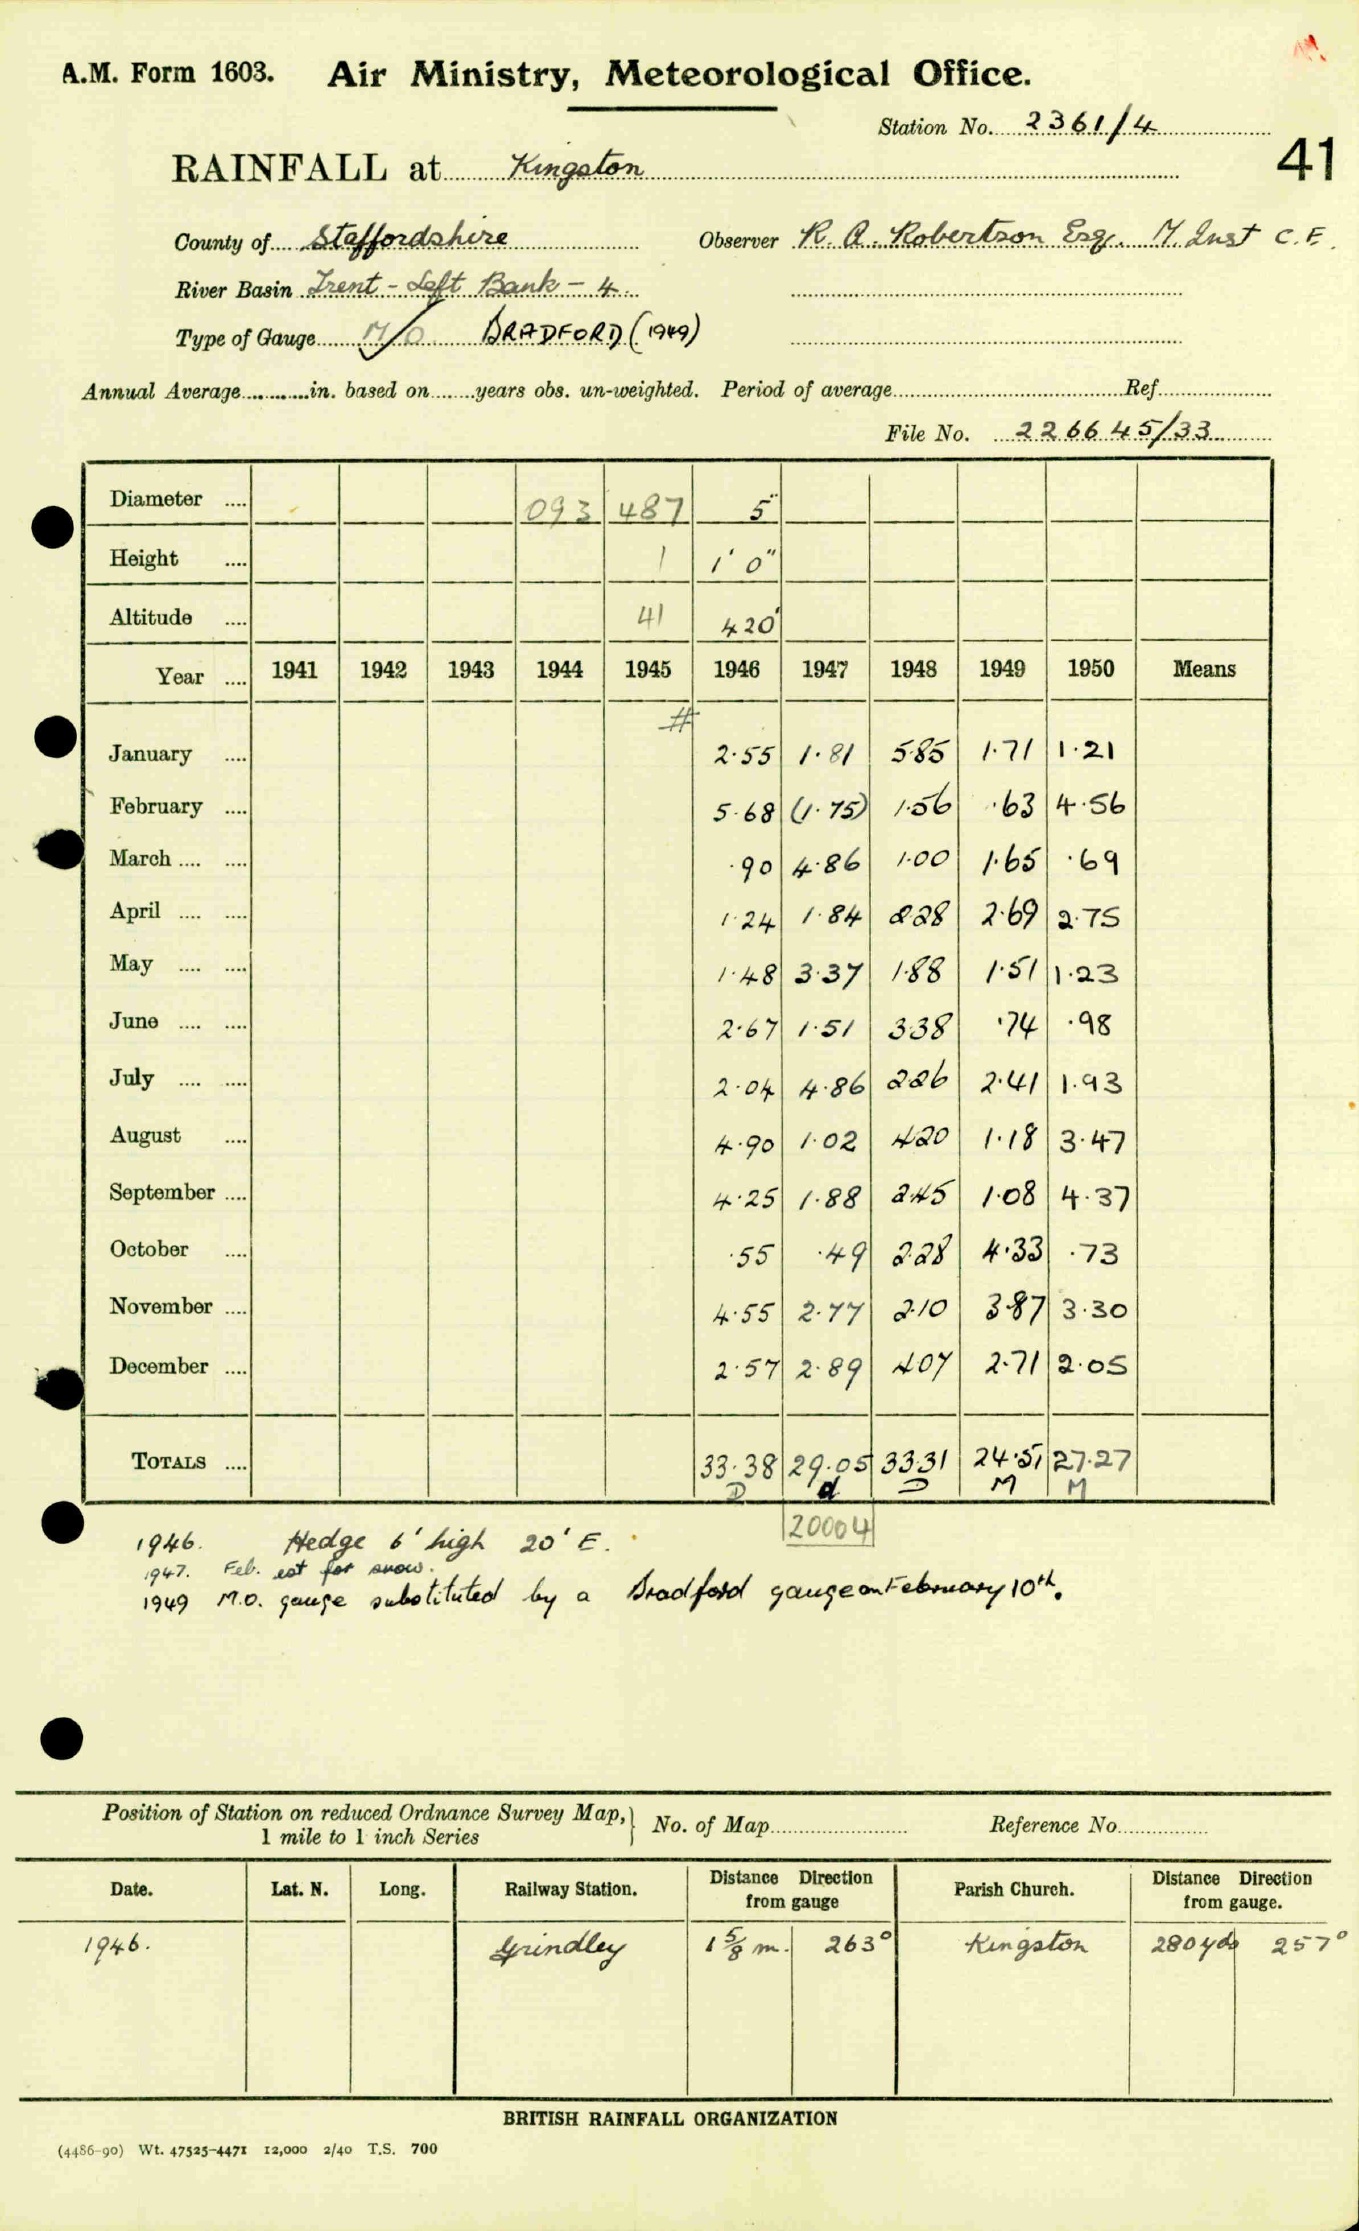 A.M. Form 1603. Air Ministry, Meteorological Office.
Station No. 2361/4
41
RAINFALL at Kingston
County of Staffordshire Observer R. A. Robertson Esq. M. Inst C. E.
River Basin Trent - Left Bank - 4
Type of Gauge M/O BRADFORD (1949)
Annual Average in. based on years obs. un-weighted. Period of average Ref
File No. 226645/33
Diameter 093 487 5"
Height 1 1' 0"
Altitude 41 420'
Year 1941 1942 1943 1944 1945 1946 1947 1948 1949 1950 Means
#
January 2.55 1.81 5.85 1.71 1.21
February 5.68 (1.75) 1.56 .63 4.56
March .90 4.86 1.00 1.65 .69
April 1.24 1.84 2.28 2.69 2.75
May 1.48 3.37 1.88 1.51 1.23
June 2.67 1.51 3.38 .74 .98
July 2.04 4.86 2.26 2.41 1.93
August 4.90 1.02 4.20 1.18 3.47
September 4.25 1.88 2.45 1.08 4.37
October .55 .49 2.28 4.33 .73
November 4.55 2.77 2.10 3.87 3.30
December 2.57 2.89 4.07 2.71 2.05
TOTALS 33.38 29.05 33.31 24.51 27.27
D d D M M
20004
1946. Hedge 6' high 20' E.
1947. Feb. est for snow.
1949 M.O. gauge substituted by a Bradford gauge on February 10th.
Position of Station on reduced Ordnance Survey Map, No. of Map Reference No
1 mile to 1 inch Series
Date. Lat. N. Long. Railway Station. Distance Direction from gauge Parish Church. Distance Direction from gauge.
1946. Grindley 1 5/8 m. 263° Kingston 280 yds 257°
BRITISH RAINFALL ORGANIZATION
(4486-90) Wt. 47525-4471 12,000 2/40 T.S. 700